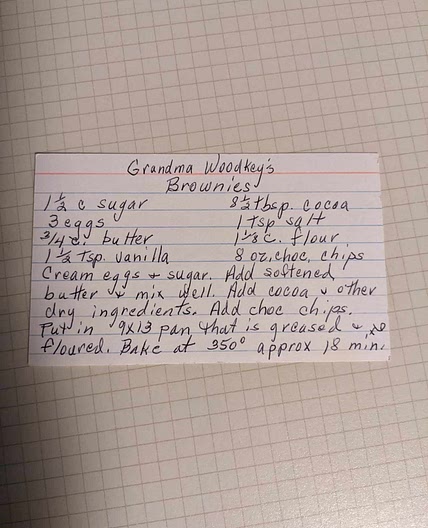 Grandma Woodkey's
Brownies
1 1/2 c sugar 8 1/2 tbsp. cocoa
3 eggs 1 tsp salt
3/4 c. butter 1 1/8 c. flour
1 1/2 Tsp. vanilla 8 oz. choc. chips
Cream eggs + sugar. Add softened
butter + mix well. Add cocoa + other
dry ingredients. Add choc chips.
Put in 9x13 pan that is greased +
floured. Bake at 350° approx 18 min.